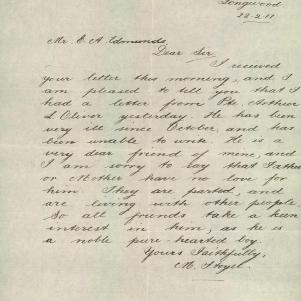 Longwood
22-2-17
Mr. E. A. Edmunds.
Dear Sir
I received
your letter this morning, and I
am pleased to tell you that I
had a letter from Pte. Arthur
L Oliver yesterday. He has been
very ill since October, and has
been unable to write. He is a
very dear friend of mine, and
I am sorry to say that Father
or Mother have no love for
him. They are parted, and
are living with other people.
So all friends take a keen
interest in him, as he is
a noble pure hearted boy.
Yours Faithfully,
M.